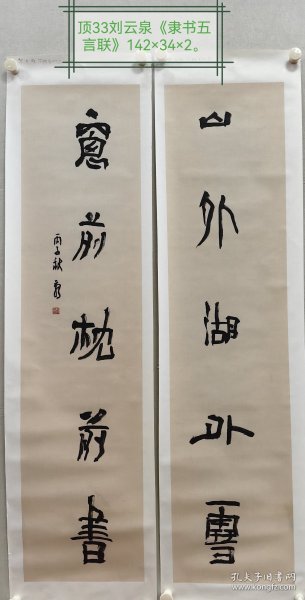 顶33刘云泉《隶书五
言联》142×34×2。
山外湖外雪
窗前枕前書
丙子秋
孔夫子旧书网